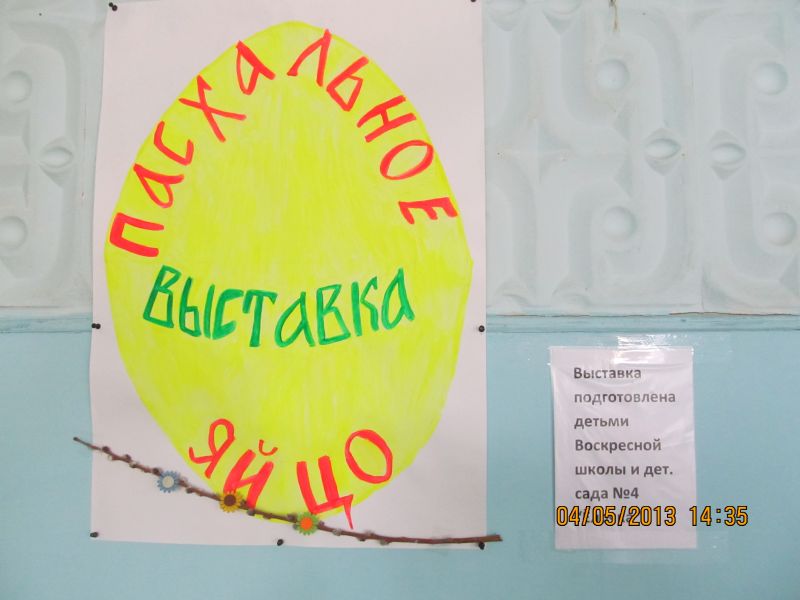 ПАСХАЛЬНОЕ
ВЫСТАВКА
ЯЙЦО
Выставка
подготовлена
детьми
Воскресной
школы и дет.
сада №4
04/05/2013 14:35